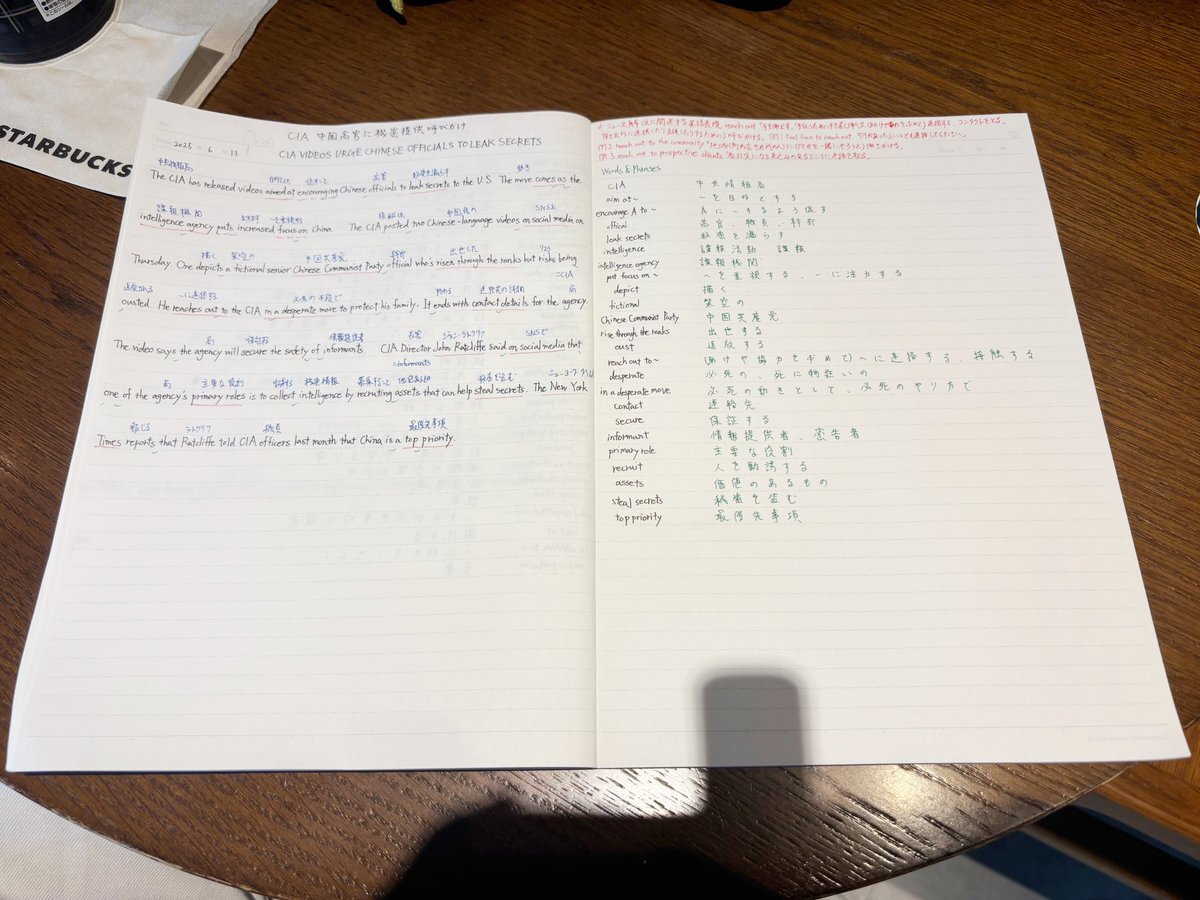 STARBUCKS
2025 6 13
CIA 中国高官に秘密提供呼びかけ
CIA VIDEOS URGE CHINESE OFFICIALS TO LEAK SECRETS
中央情報局 目的とした 促すこと 高官 秘密を漏らす 動き
The CIA has released videos aimed at encouraging Chinese officials to leak secrets to the U.S. The move comes as the
諜報機関 中国語の SNS上
intelligence agency puts increased focus on China. The CIA posted two Chinese-language videos on social media on
描く 架空の 中国共産党 出世した リスク
Thursday. One depicts a fictional senior Chinese Communist Party official who's risen through the ranks but risks being
=CIA
追放される ～に連絡する 必死の手段で 終わる 連絡先の詳細 局
ousted. He reaches out to the CIA in a desperate move to protect his family. It ends with contact details for the agency.
局 情報提供者 長官 ジョン・ラトクリフ SNSで
The video says the agency will secure the safety of informants. CIA Director John Ratcliffe said on social media that
=informants
局 主要な役割 機密情報 募集すること 価値あるもの 秘密を盗む ニューヨーク・タイムズ
one of the agency's primary roles is to collect intelligence by recruiting assets that can help steal secrets. The New York
報じる ラトクリフ 職員 最優先事項
Times reports that Ratcliffe told CIA officers last month that China is a top priority.
reach out
例1 Feel free to reach out.
例2 reach out to the community
例3 reach out to prospective clients
Words & Phrases
CIA 中央情報局
aim at~ ～を目的とする
encourage A to~ Aに～するよう促す
offical 高官、職員、幹部
leak secrets 秘密を漏らす
intelligence 諜報活動、諜報
intelligence agency 諜報機関
put focus on~ ～を重視する、～に注力する
depict 描く
fictional 架空の
Chinese Communist Party 中国共産党
rise through the ranks 出世する
oust 追放する
reach out to~ (助けや協力を求めて)～に連絡する、接触する
desperate 必死の、死に物狂いの
in a desperate move 必死の動きとして、必死のやり方で
contact 連絡先
secure 保証する
informant 情報提供者、密告者
primary role 主要な役割
recruit 人を勧誘する
assets 価値のあるもの
steal secrets 秘密を盗む
top priority 最優先事項